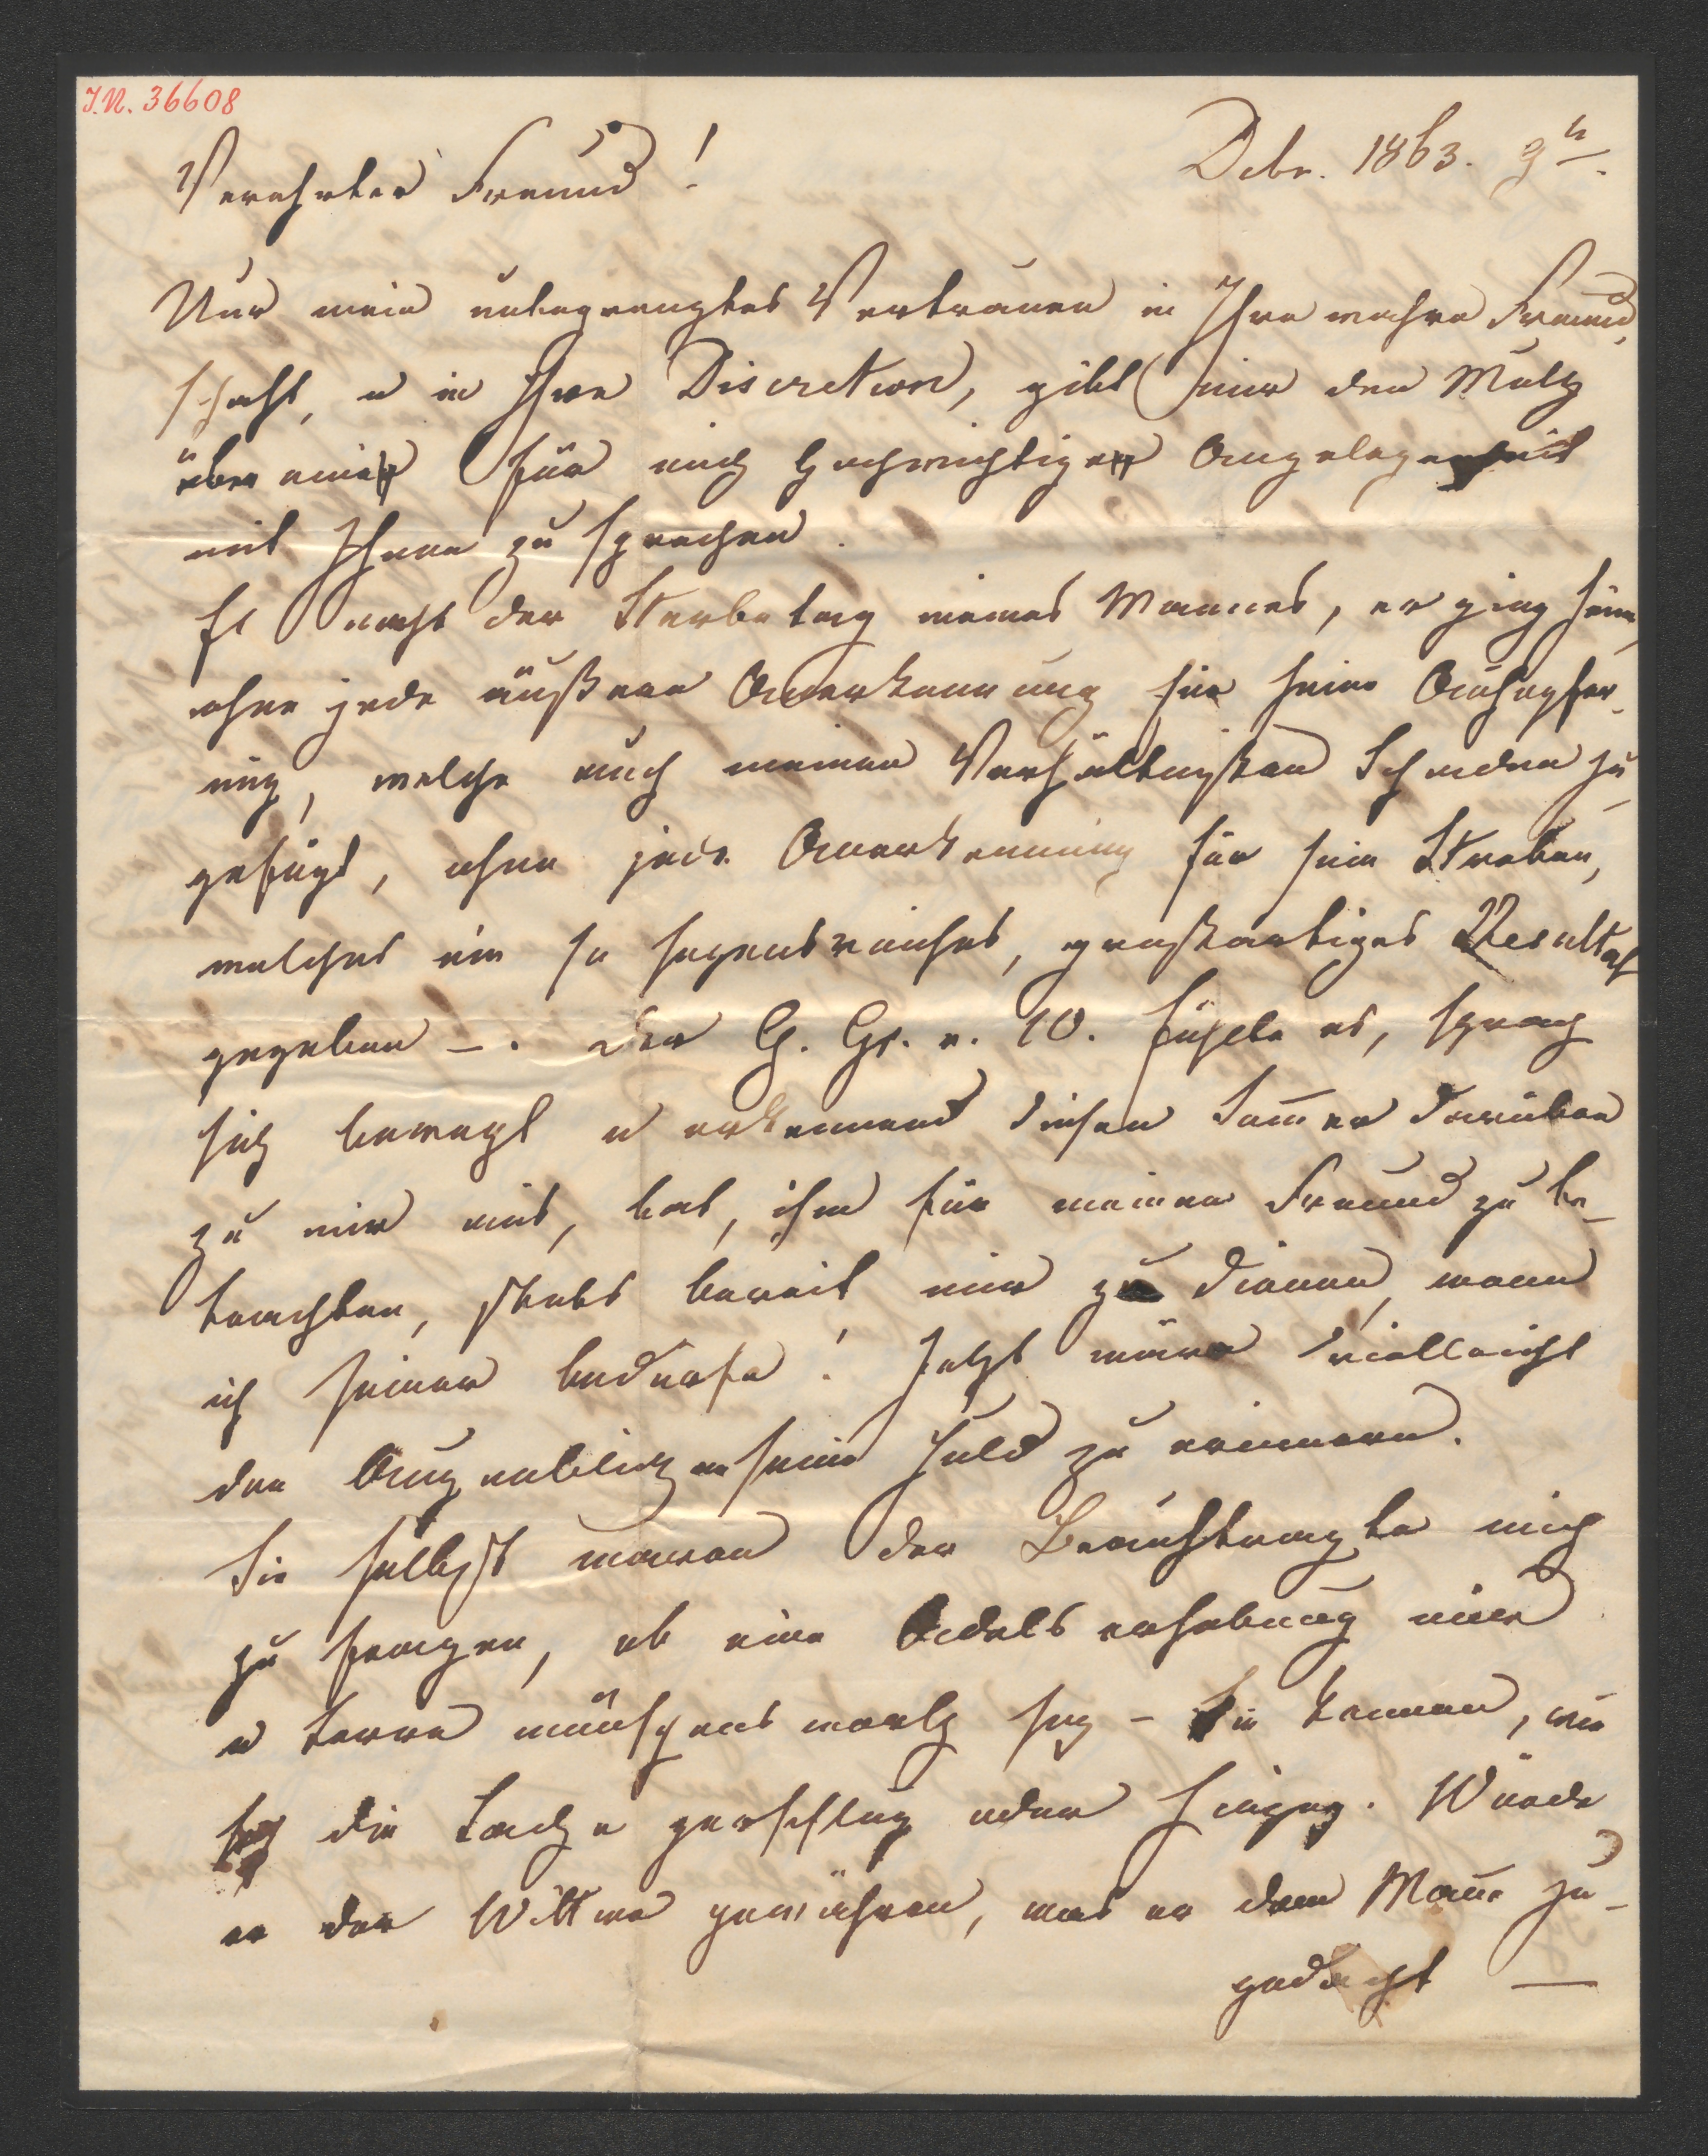 J.N. 36608
Dcbr. 1863. 9t.
Verehrter Freund!
Nur mein unbegrenztes Vertrauen in Ihre wahre Freund-
schaft, u in Ihre Discretion, gibt mir den Muth
über eine für mich hochwichtige Angelegenheit
mit Ihnen zu sprechen.
Es naht der Sterbetag meines Mannes, er ging hin,
ohne jede äußere Anerkennung für seine Aufopfer-
ung, welche auch meinen Verhältnißen Schaden zu-
gefügt, ohne jede Anerkennung für sein Streben,
welches ein so segensreiches, großartiges Resultat
gegeben –. Der G. Gr. v. W. fühlte es, sprach
sich bewegt u erkennend diesen Som̄er darüber
zu mir aus, bat, ihn für meinen Freund zu be-
trachten, stets bereit mir zu dienen, wenn
ich seiner bedürfe! Jetzt wäre vielleicht
der Augenblick an seine Huld zu erinnern.
Sie selbst waren der Beauftragte mich
zu fragen, ob eine Adelserhebung mir
u Serre wünschenswerth sey – Sie kennen, wie
sich die Sache zerschlug oder hinzog. Würde
er der Wittwe gewähren, was er dem Man̄e zu-
gedacht —